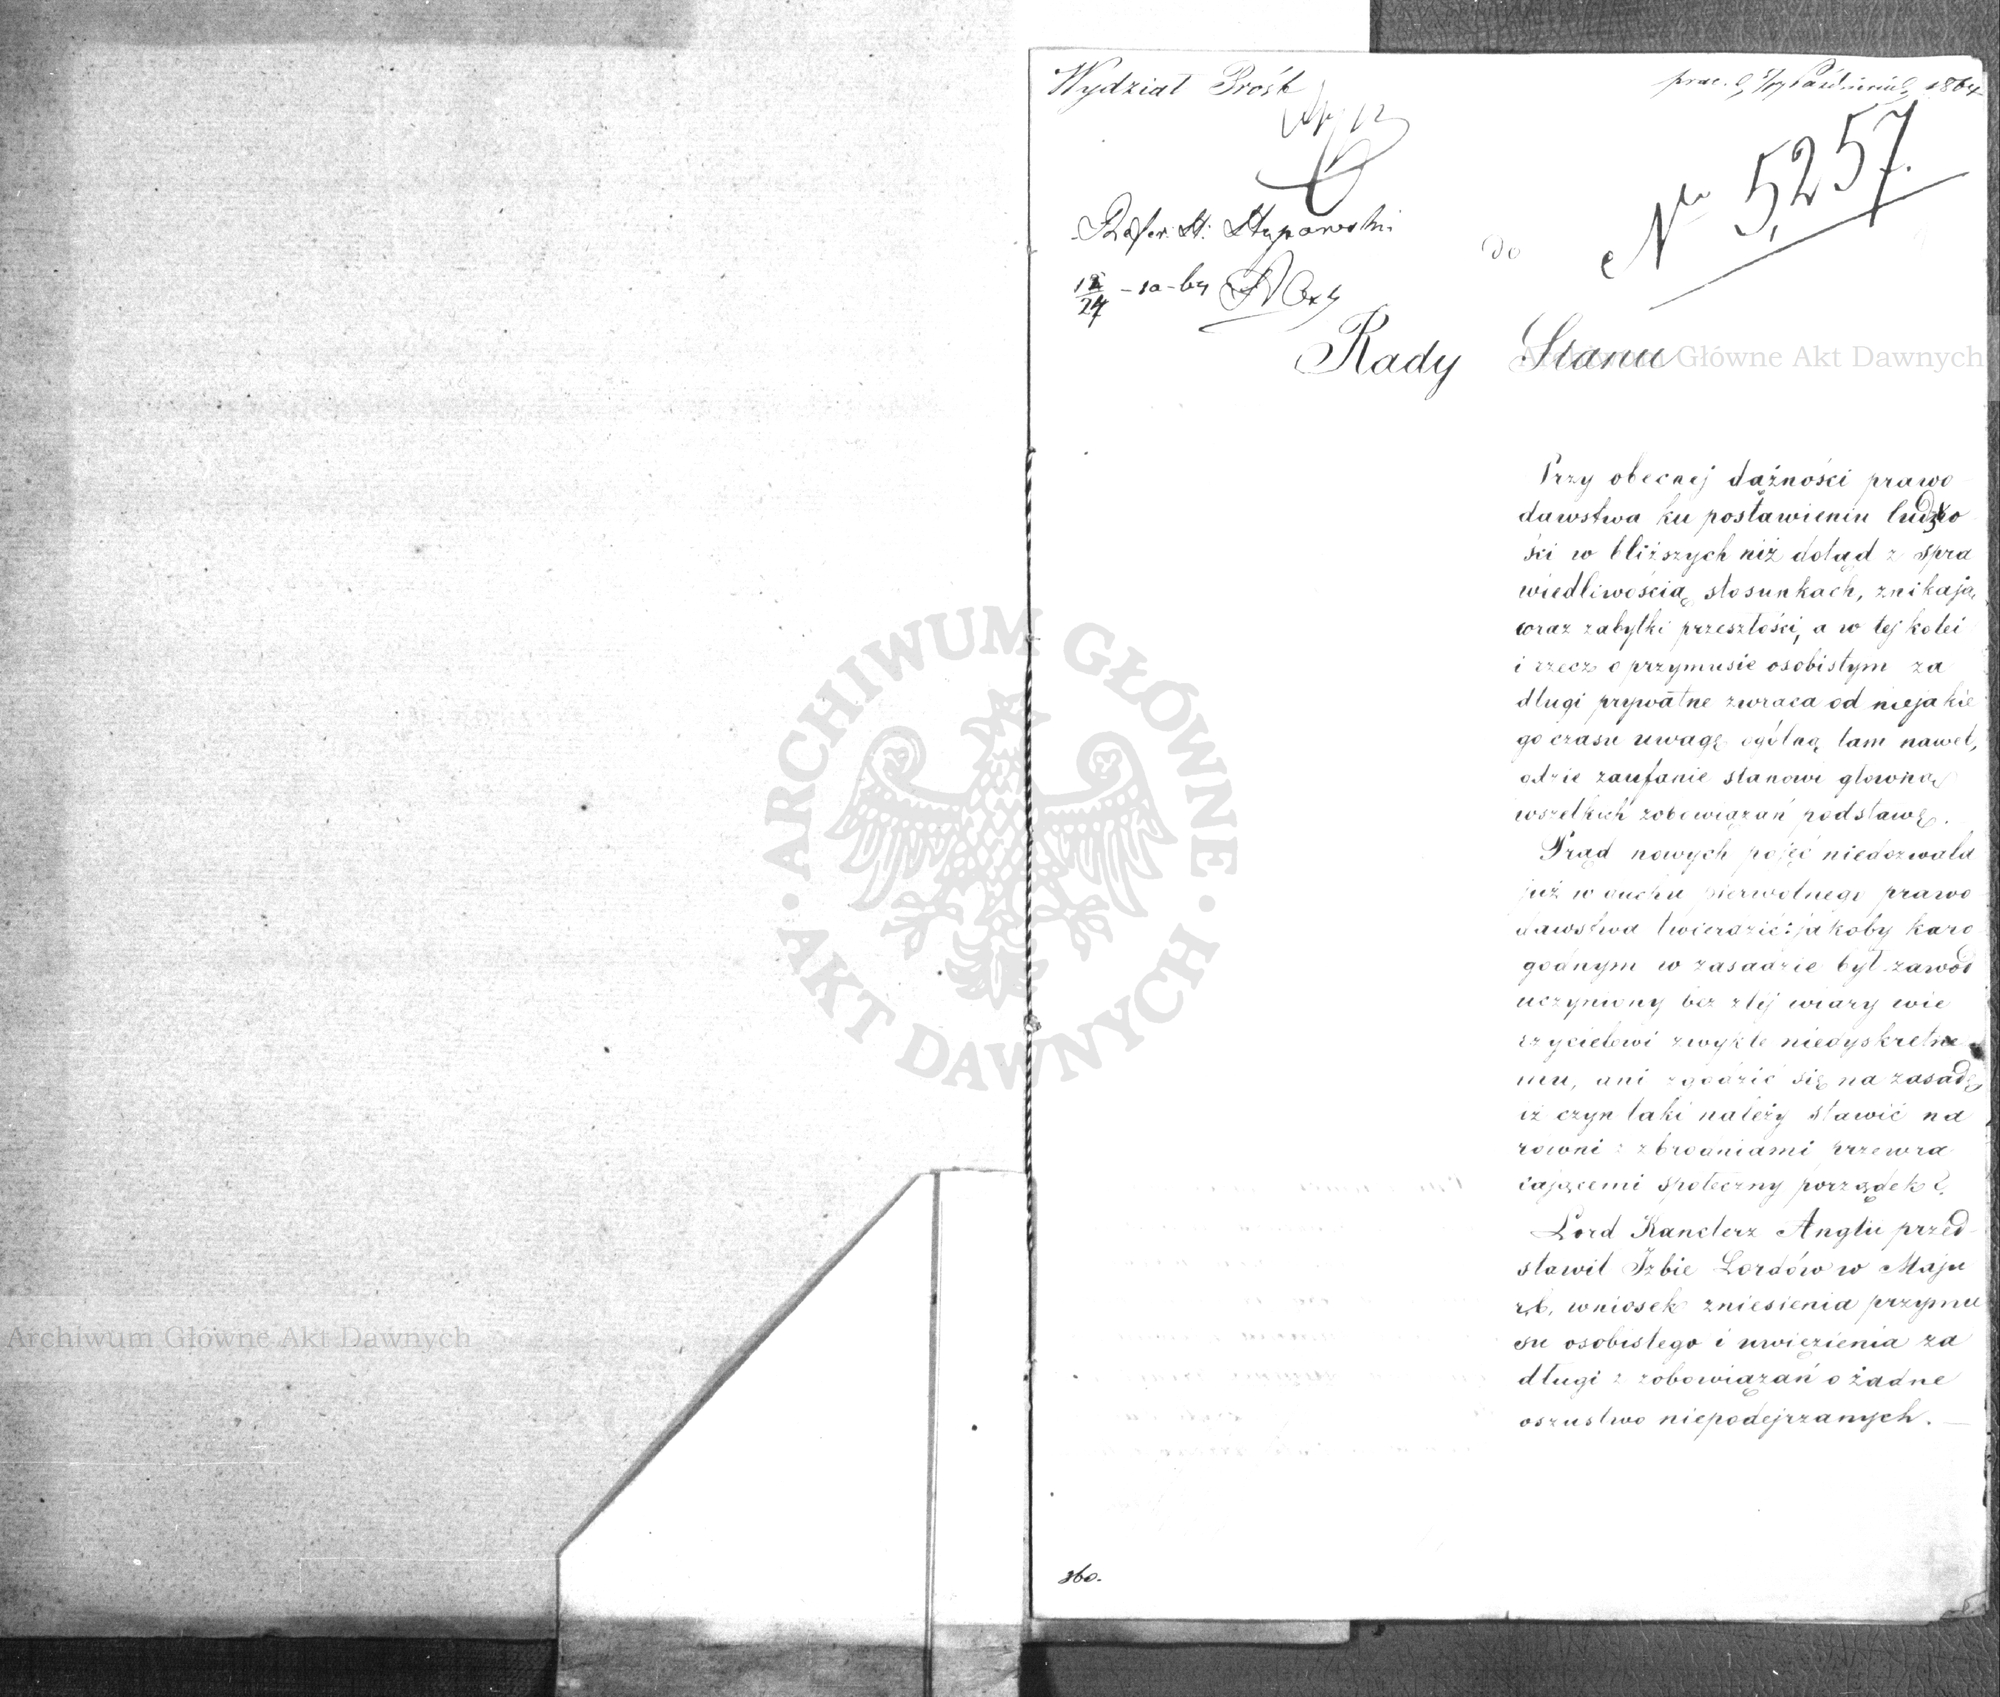 Wydział Próśb
Października 1864
Nr 5,257.
Refer. St. Stypowski
do
Rady Stanu
Archiwum Główne Akt Dawnych
Przy obecnej dążności prawo
dawstwa ku postawieniu ludzko
ści w bliższych niż dotąd z spra
wiedliwością stosunkach, znikają
wraz zabytki przeszłości, a w tej kolei
i rzecz o przymusie osobistym za
długi prywatne zwraca od niejakie
go czasu uwagę ogólną tam nawet,
gdzie zaufanie stanowi główną
wszelkich zobowiązań podstawę.
Prąd nowych pojęć niedozwala
już w duchu pierwotnego prawo
dawstwa twierdzić: jakoby karo
godnym w zasadzie był zawód
uczyniony bez złej wiary wie
rzycielowi zwykle niedyskretne
mu, ani zgodzić się na zasadę,
iż czyn taki należy stawić na
równi z zbrodniami przewra
cającemi społeczny porządek.
Lord Kanclerz Anglii przed-
stawił Izbie Lordów w Maju
r.b. wniosek zniesienia przymu
su osobistego i uwięzienia za
długi z zobowiązań o żadne
oszustwo niepodejrzanych.
360.
ARCHIWUM GŁÓWNE AKT DAWNYCH
Archiwum Główne Akt Dawnych